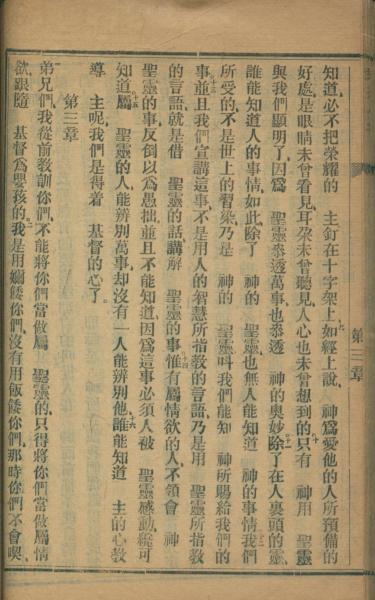 第三章
知道、必不把榮耀的　主釘在十字架上、如經上說、　神爲愛他的人所預備的
好處、是眼睛未曾看見、耳朶未曾聽見、人心也未曾想到的、只有　神用　聖靈
與我們顯明了、因爲　聖靈叅透萬事、也叅透　神的奧妙、除了在人裏頭的靈、
誰能知道人的事情、如此除了　神的　聖靈、也無人能知道　神的事情、我們
所受的、不是世上的習染、乃是　神的　聖靈、叫我們能知　神所賜給我們的
事、並且我們宣講這事、不是用人的智慧所指敎的言語、乃是用　聖靈所指敎
的言語、就是借　聖靈的話、講解　聖靈的事、惟有屬情欲的人、不領會　神
聖靈的事、反倒以爲愚拙、並且不能知道、因爲這事必須人被　聖靈感動、纔可
知道、屬　聖靈的人、能辨別萬事、却沒有一人能辨別他、誰能知道　主的心、敎
導　主呢、我們是得着　基督的心了。
第三章
弟兄們、我從前敎訓你們、不能將你們當做屬　聖靈的、只得將你們當做屬情
欲、跟隨　基督爲嬰孩的、我是用嬭餧你們、沒有用飯餧你們、那時你們不會喫、